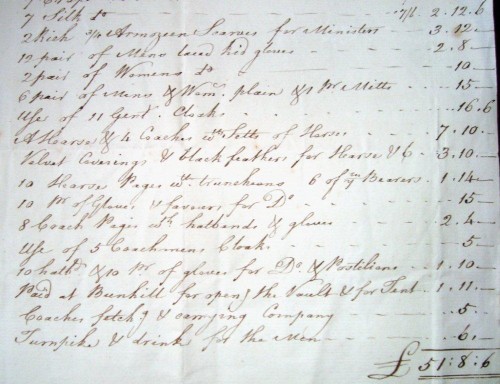 7 Silk Do - - - 7/6 . 2 . 12 . 6
2 Rich 3/4 Armozeen Scarves for Ministers - 3 . 12 . -
12 pair of Mens laced kid gloves - - 2 . 8 -
2 pair of Womens Do - - - 10 -
6 pair of Mens & Wom. plain & 1 Pr Mitts - 15 -
Use of 11 Gent. Cloaks - - 16 . 6
A Hearse & 4 Coaches wth Setts of Horses - 7 . 10 . -
Velvet Coverings & black feathers for Hearse & 6 . 3 . 10 . -
10 Hearse Pages wth truncheons 6 of ym Bearers . 1 . 14 -
10 Pr of Gloves & favours for Do - - 15 -
8 Coach Pages wth hatbands & gloves - 2 . 4 -
Use of 5 Coachmens Cloaks - - 5 -
10 hatbds & 10 Pr of gloves for Do & Postilians . 1 . 10 -
Paid at Bunhill for openg the Vault & for Tent . 1 . 11 . -
Coaches fetchg & carrying Company - - 5 . -
Turnpike & drink for the Men - - 6 . -
£ 51 : 8 : 6